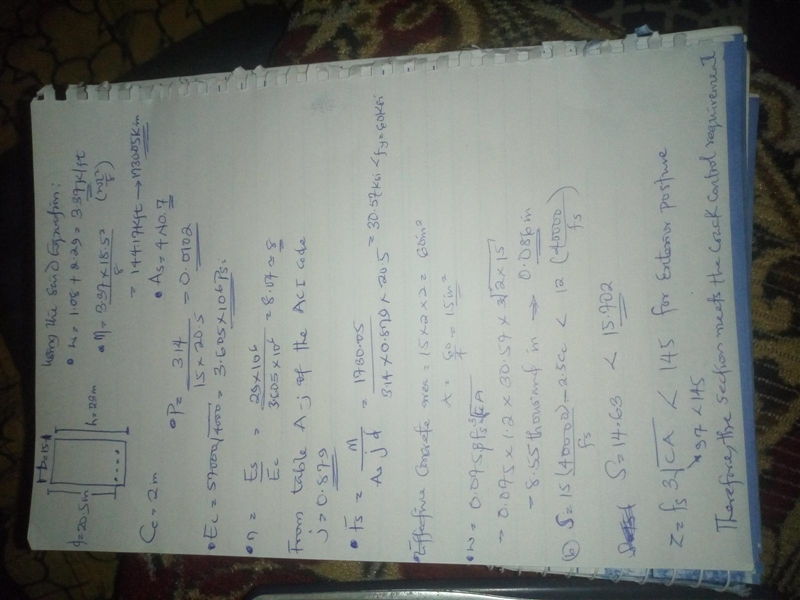 using the given Equation:
b=15"
h=23in
d=20.5in
• w = 1.08 + 2.29 = 3.37 k/ft
• M = 3.37 × 18.5² / 8 (wl²/8)
= 144.17 k ft → 1730.05 k in
Cc = 2in
• As = 4 No.7
• P = 3.14 / 15 × 20.5 = 0.0102
• Ec = 57000√4000 = 3.605×10⁶ Psi
• n = Es / Ec = 29×10⁶ / 3.605×10⁶ = 8.04 ≈ 8
From table A-j of the ACI code
j = 0.879
• Fs = M / As j d = 1730.05 / 3.14 × 0.879 × 20.5 = 30.57 ksi < fy = 60 ksi
• Effective Concrete area = 15 × 2 × 2 = 60 in²
A = 60 / 4 = 15 in²
• w = 0.075 β fs ∛cA
→ 0.075 × 1.2 × 30.57 × ∛2 × 15
= 8.55 thousand in → 0.086 in
(b) S = 15 (40000) / fs − 2.5 cc < 12 (40000 / fs)
S = 14.63 < 15.702
Z = fs 3√CA < 145 for Exterior posture
• 97 < 145
Therefore, the section meets the crack control requirement